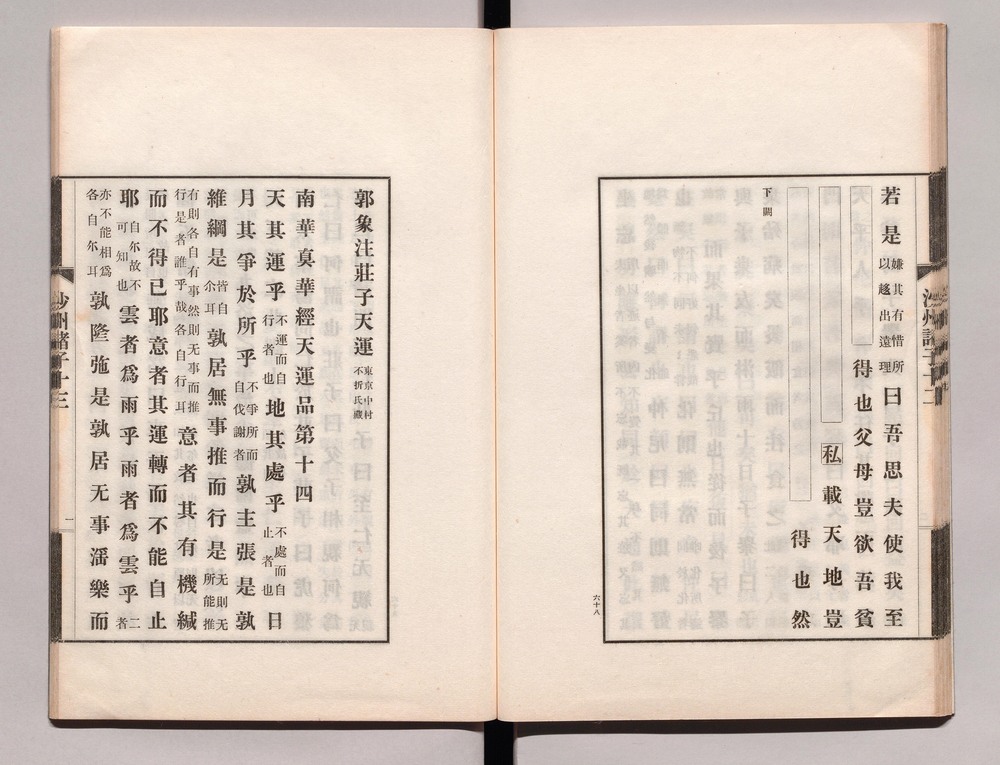 若是嫌其有惜所以趍出遠理曰吾思夫使我至
得也父母豈欲吾貧
私載天地豈
得也然
下闕
六十八
郭象注莊子天運東京中村不折氏藏
南華真華經天運品第十四
天其運乎不運而自行者也地其處乎不處而自止者也日
月其爭於所乎不爭所而自伐謝者孰主張是孰
維綱是皆自尒耳孰居無事推而行是无則无所能推
有則各自有事然則无事而推行是者誰乎哉各自行耳意者其有機緘
而不得已耶意者其運轉而不能自止
耶自尔故不可知也雲者為雨乎雨者為雲乎二者
亦不能相為各自尔耳孰隆弛是孰居无事滛樂而
沙州諸子十三
一